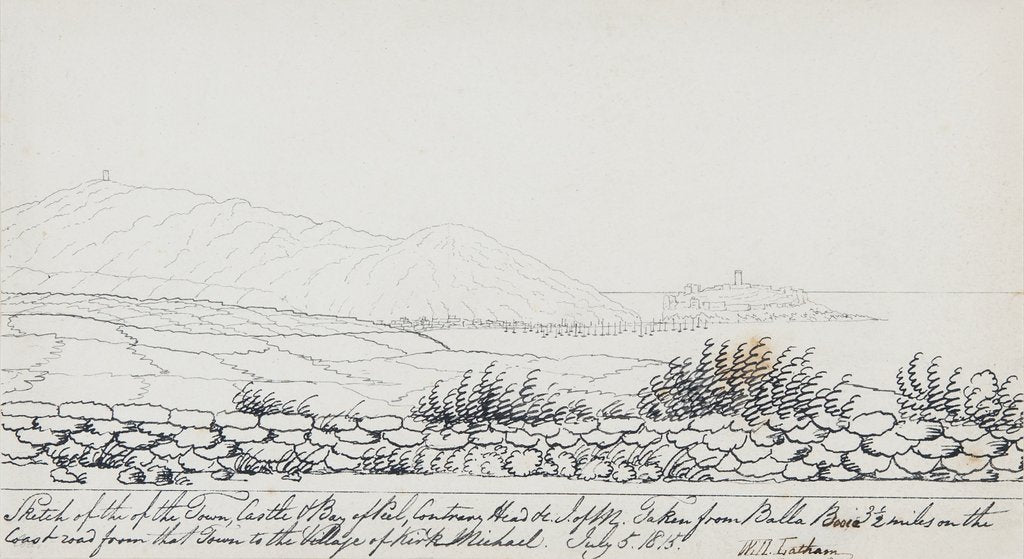 Sketch of the of the Town, Castle & Bay of Peel, Contrary Head &c. I. of M. Taken from Balla 3½ miles on the
Coast road from that Town to the Village of Kirk Michael. July 5. 1815.
W. Latham